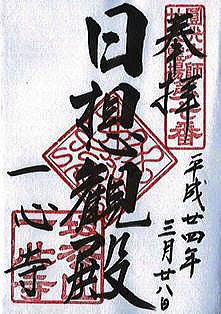 奉拝
日想観殿
一心寺
平成廿四年
三月廿八日